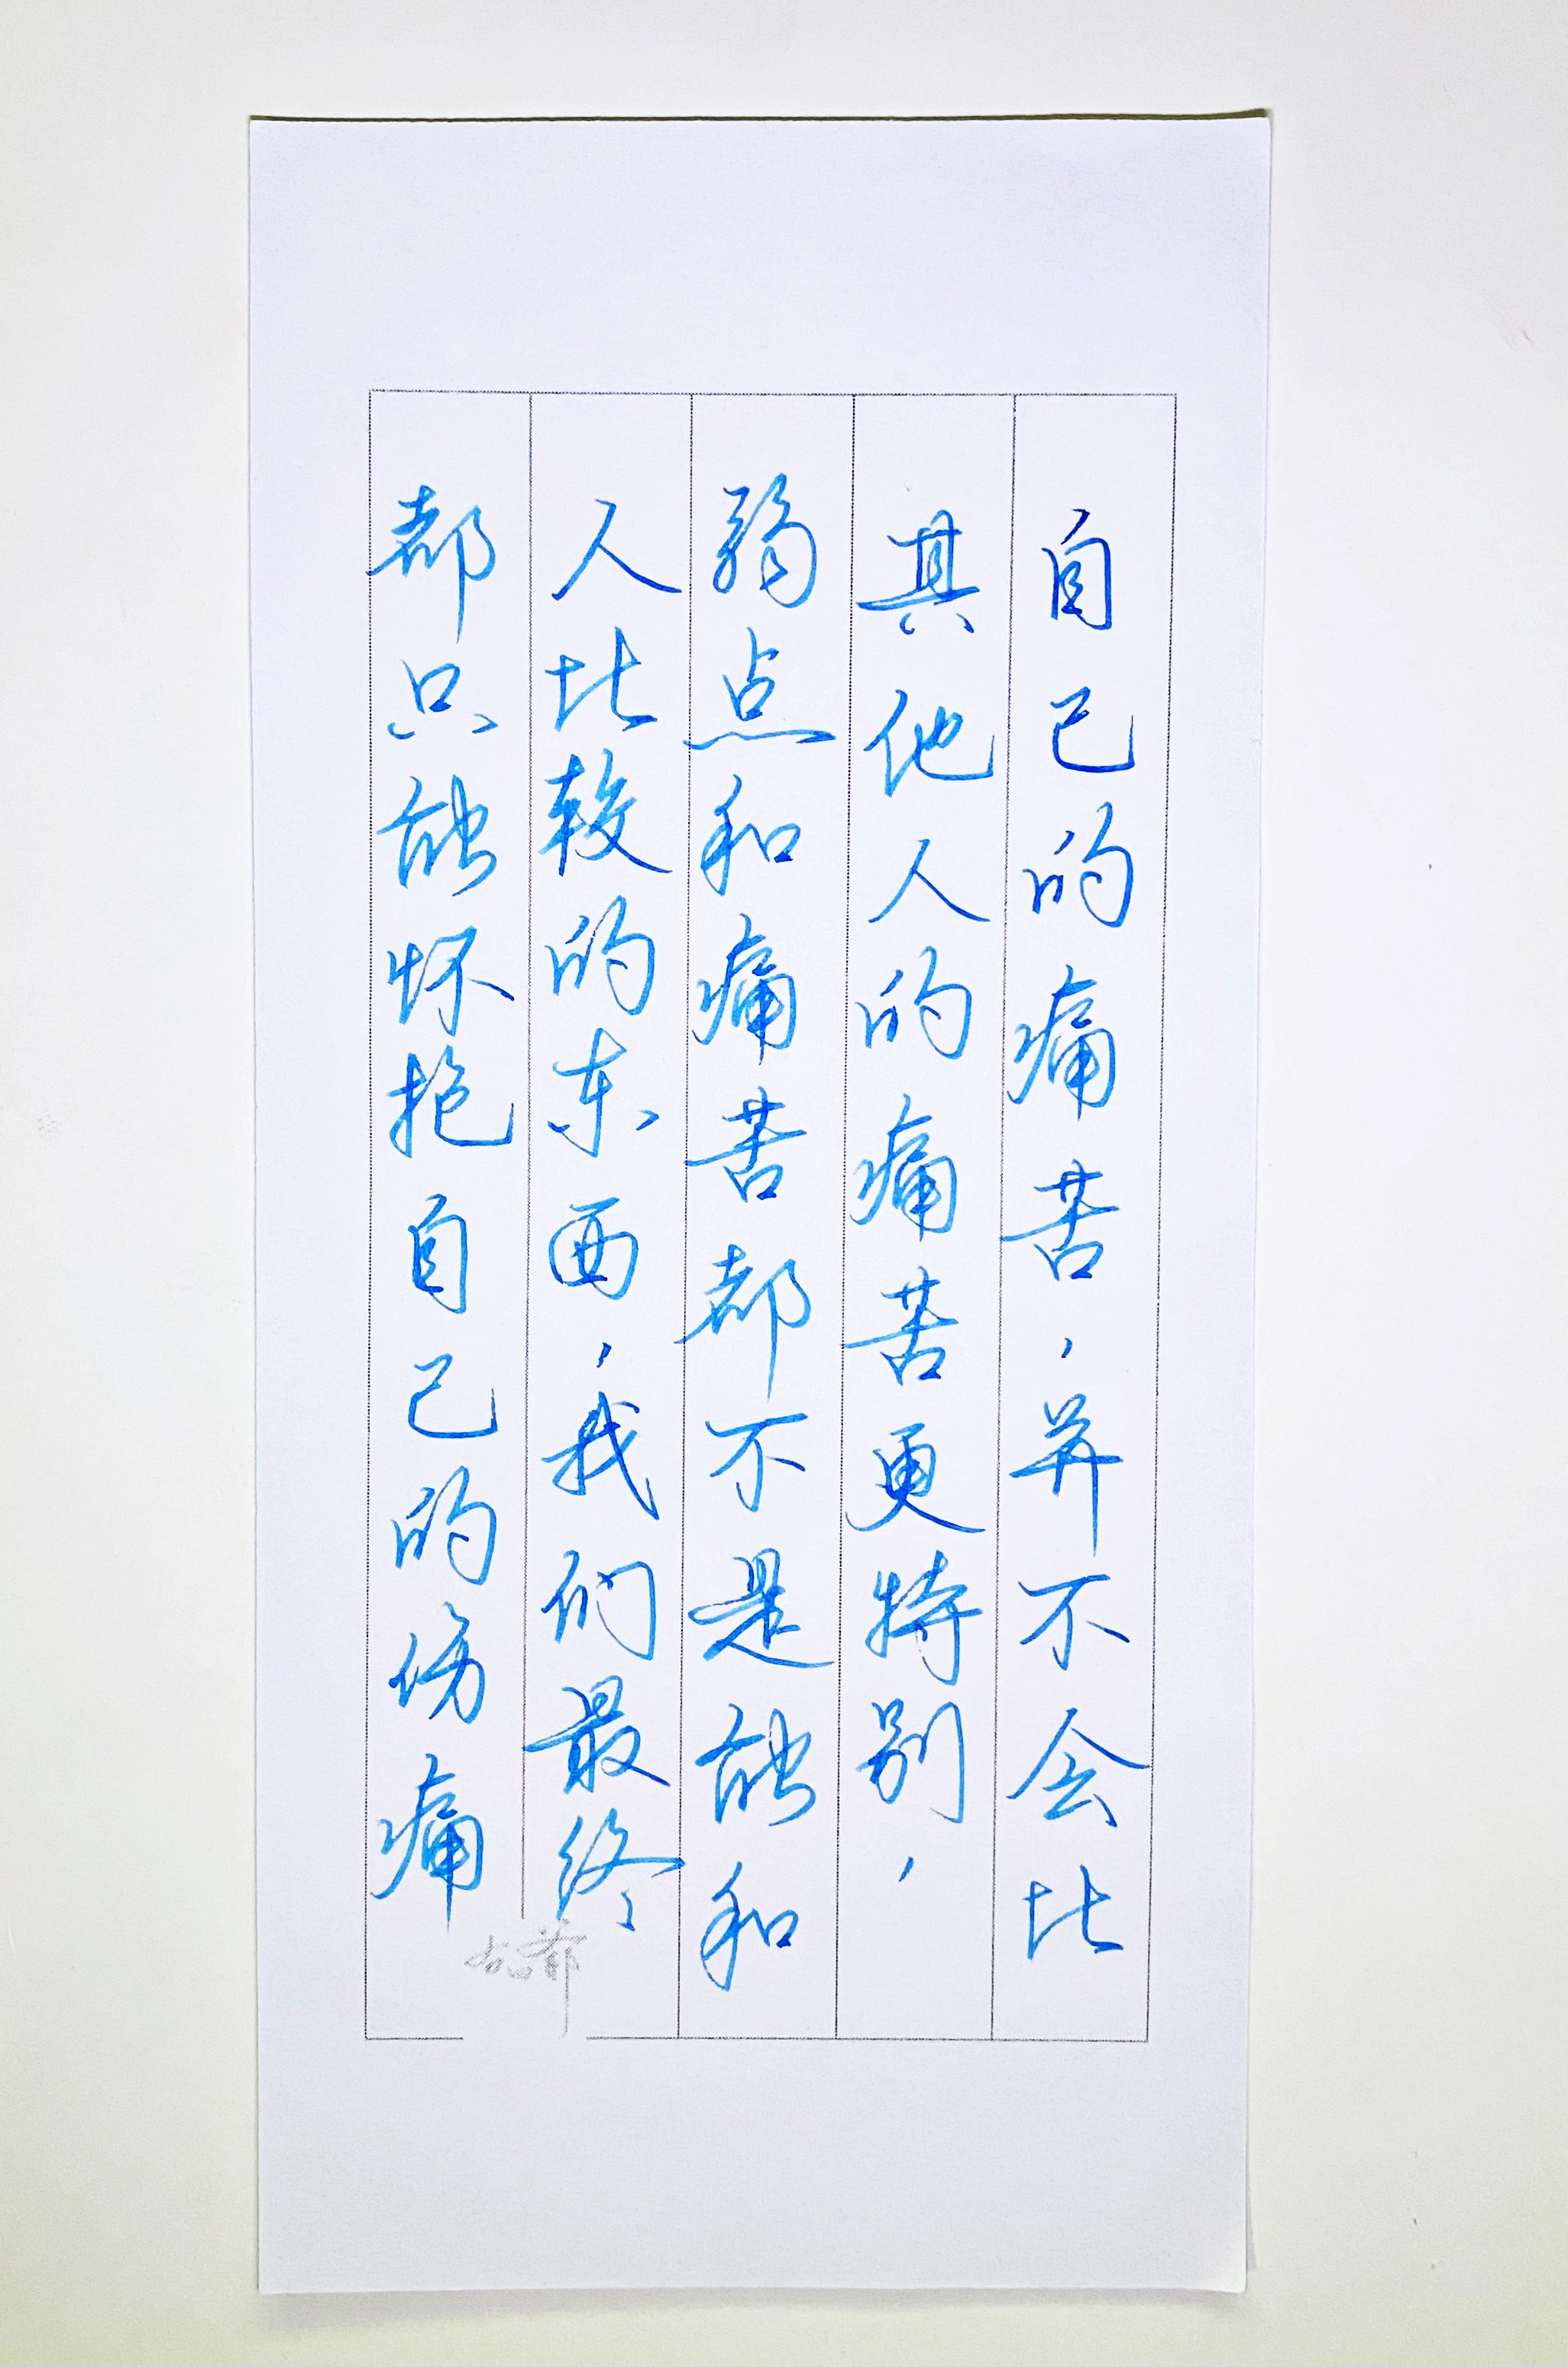 自己的痛苦，并不会比
其他人的痛苦更特别，
弱点和痛苦都不是能和
人比较的东西，我们最终
都只能怀抱自己的伤痛